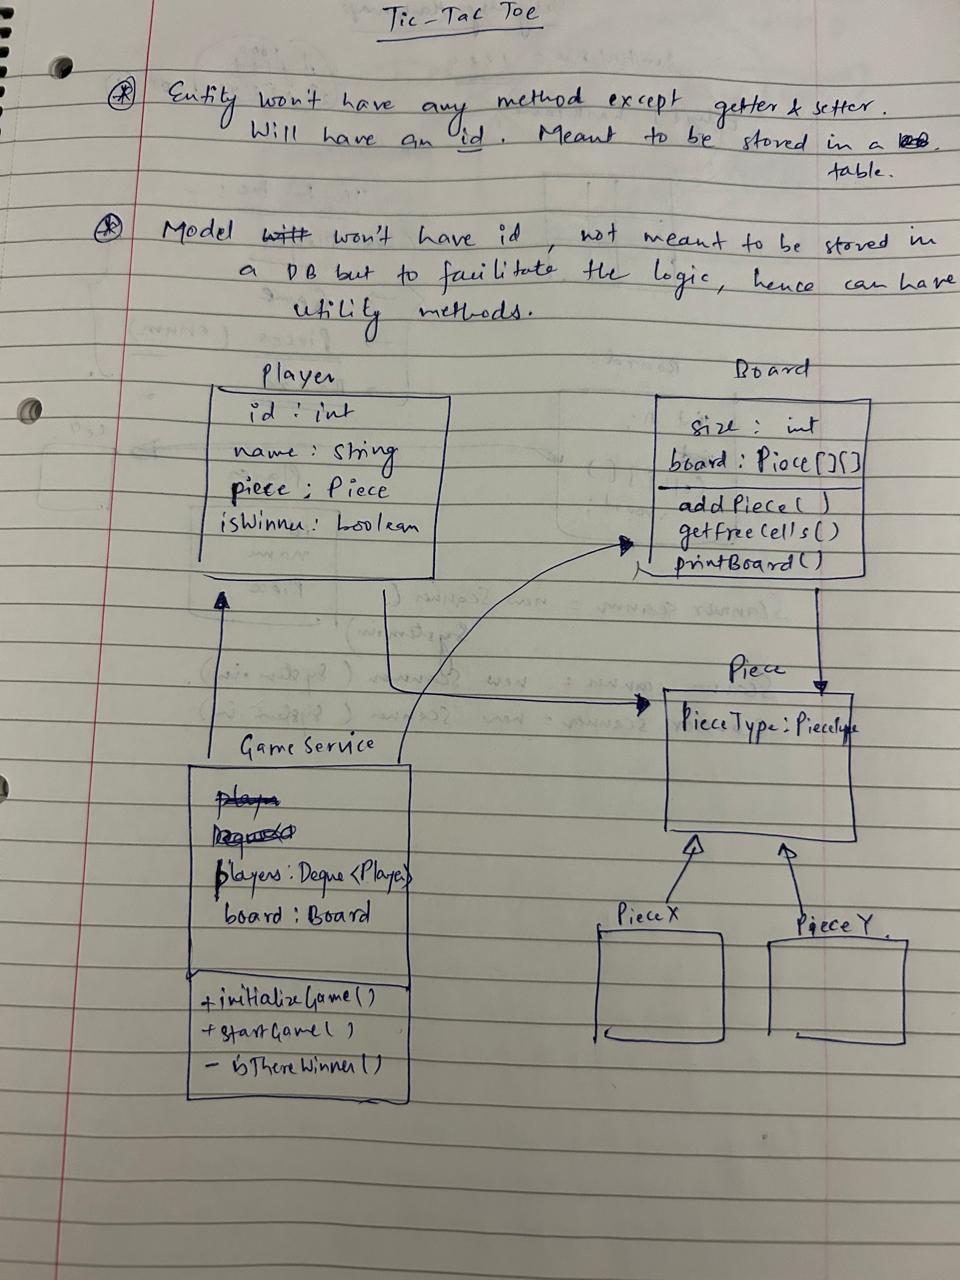 Tic-Tac Toe
Entity won't have any method except getter & setter.
Will have an id. Meant to be stored in a
table.
Model won't have id, not meant to be stored in
a DB but to facilitate the logic, hence can have
utility methods.
Player
id : int
name : string
piece : Piece
isWinner : boolean
Board
size : int
board : Piece[][]
addPiece( )
getFreeCells()
printBoard()
Piece
PieceType : PieceType
Game Service
players : Deque<Player>
board : Board
+ initializeGame()
+ startGame( )
- isThereWinner()
PieceX
PieceY